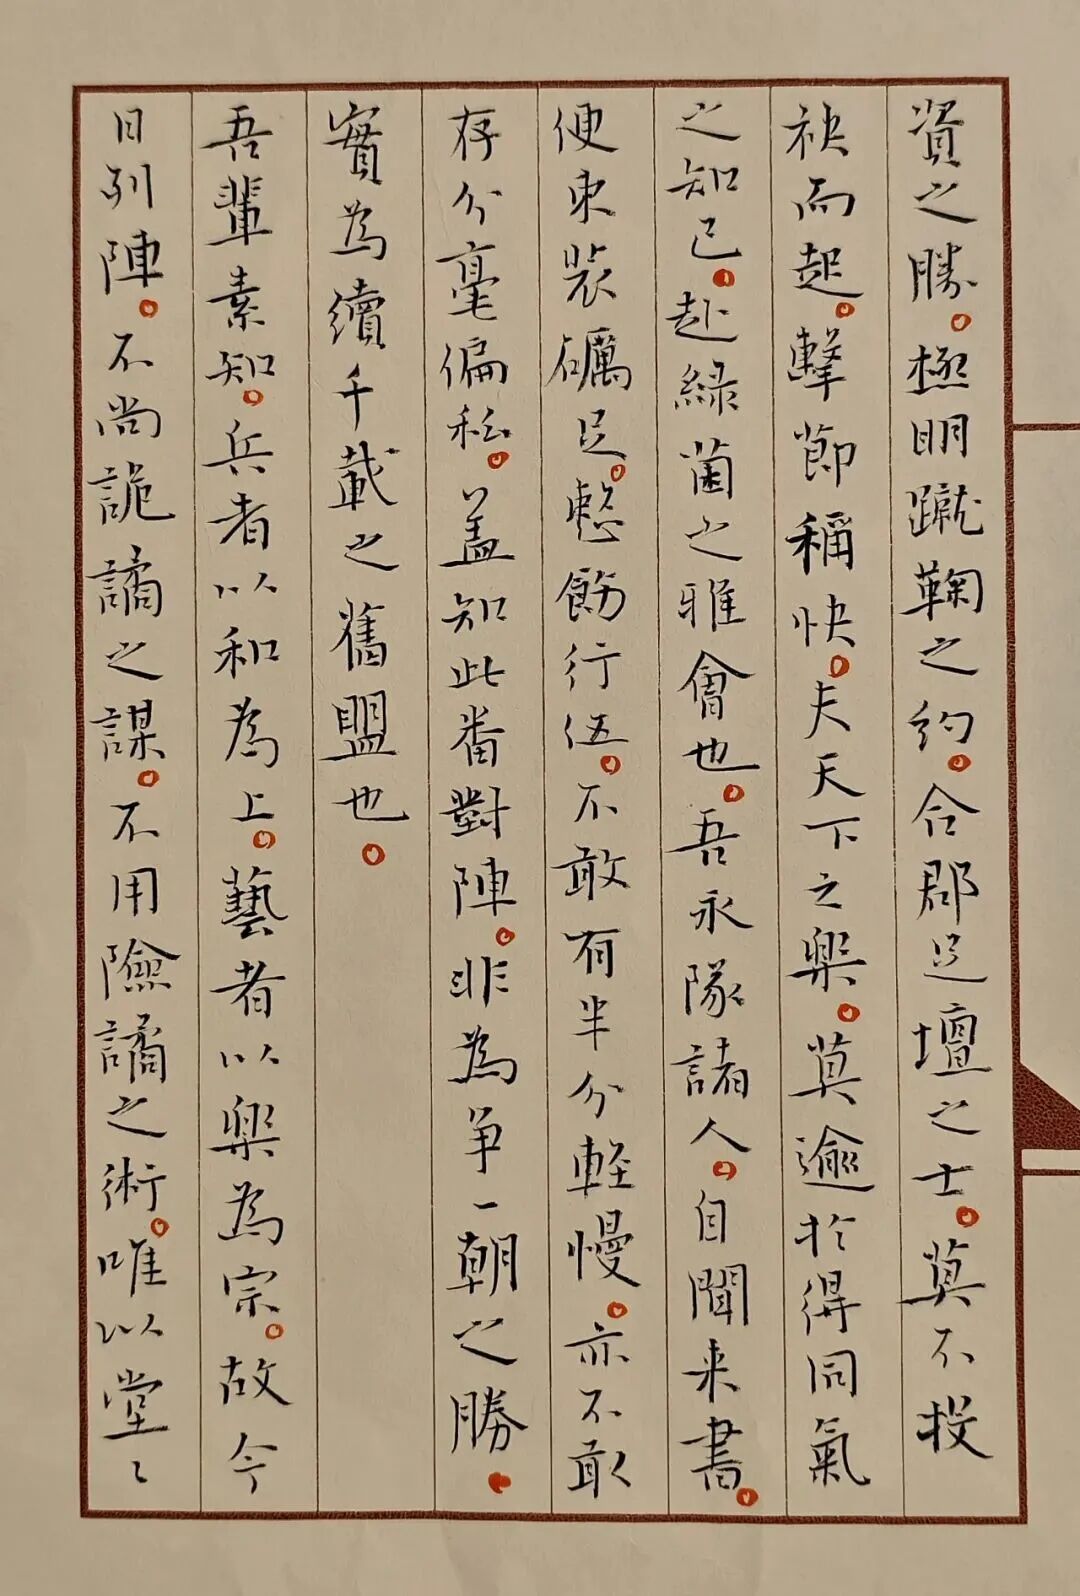 資之勝。極明蹴鞠之約。合郡足壇之士。莫不投
袂而起。擊節稱快。夫天下之樂。莫逾於得同氣
之知己。赴綠茵之雅會也。吾永隊諸人。自聞来書。
便束裝礪足。整飭行伍。不敢有半分輕慢。亦不敢
存分毫偏私。盖知此番對陣。非為争一朝之勝。
實為續千載之舊盟也。
吾輩素知。兵者以和為上。藝者以樂為宗。故今
日列陣。不尚詭譎之謀。不用險譎之術。唯以堂〻